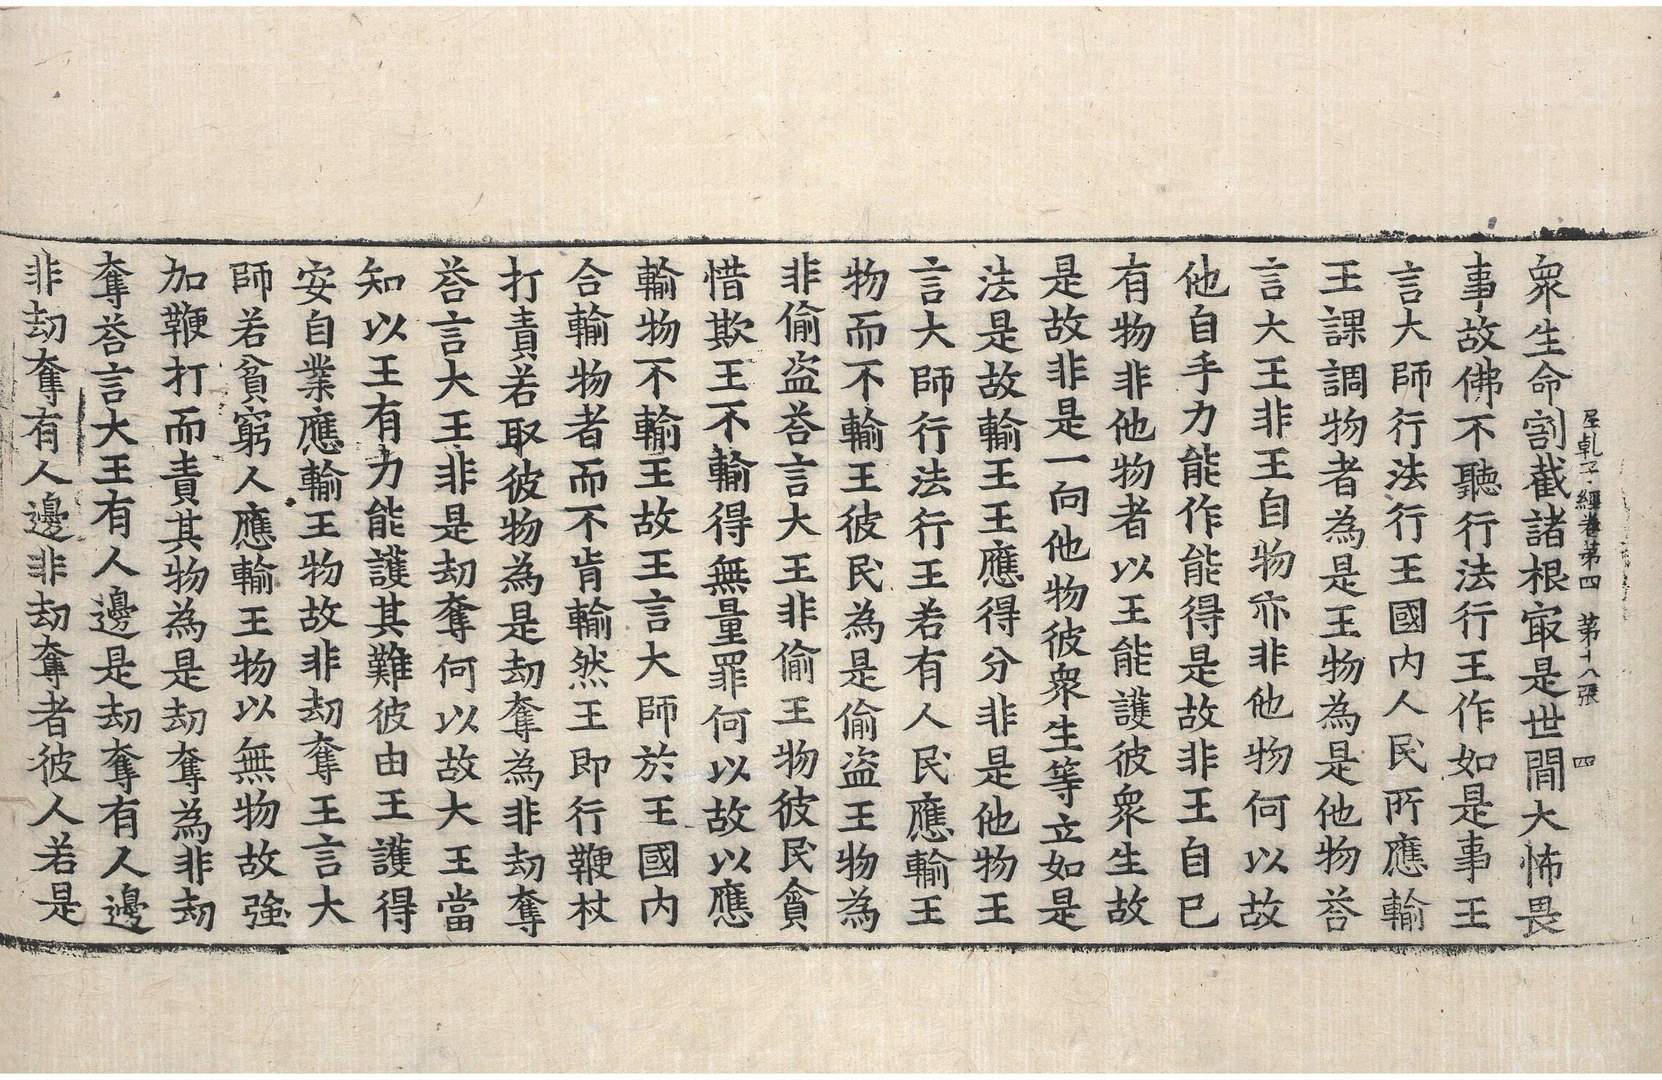 尼乹子經卷第四　第十八張　四
衆生命割截諸根㝡是世間大怖畏
事故佛不聽行法行王作如是事王
言大師行法行王國内人民所應輸
王課調物者為是王物為是他物荅
言大王非王自物亦非他物何以故
他自手力能作能得是故非王自已
有物非他物者以王能護彼衆生故
是故非是一向他物彼衆生等立如是
法是故輸王王應得分非是他物王
言大師行法行王若有人民應輸王
物而不輸王彼民為是偷盜王物為
非偷盜荅言大王非偷王物彼民貪
惜欺王不輸得無量罪何以故以應
輸物不輸王故王言大師於王國内
合輸物者而不肯輸然王即行鞭杖
打責若取彼物為是劫奪為非劫奪
荅言大王非是劫奪何以故大王當
知以王有力能護其難彼由王護得
安自業應輸王物故非劫奪王言大
師若貧窮人應輸王物以無物故強
加鞭打而責其物為是劫奪為非劫
奪荅言大王有人邊是劫奪有人邊
非劫奪有人邊非劫奪者彼人若是